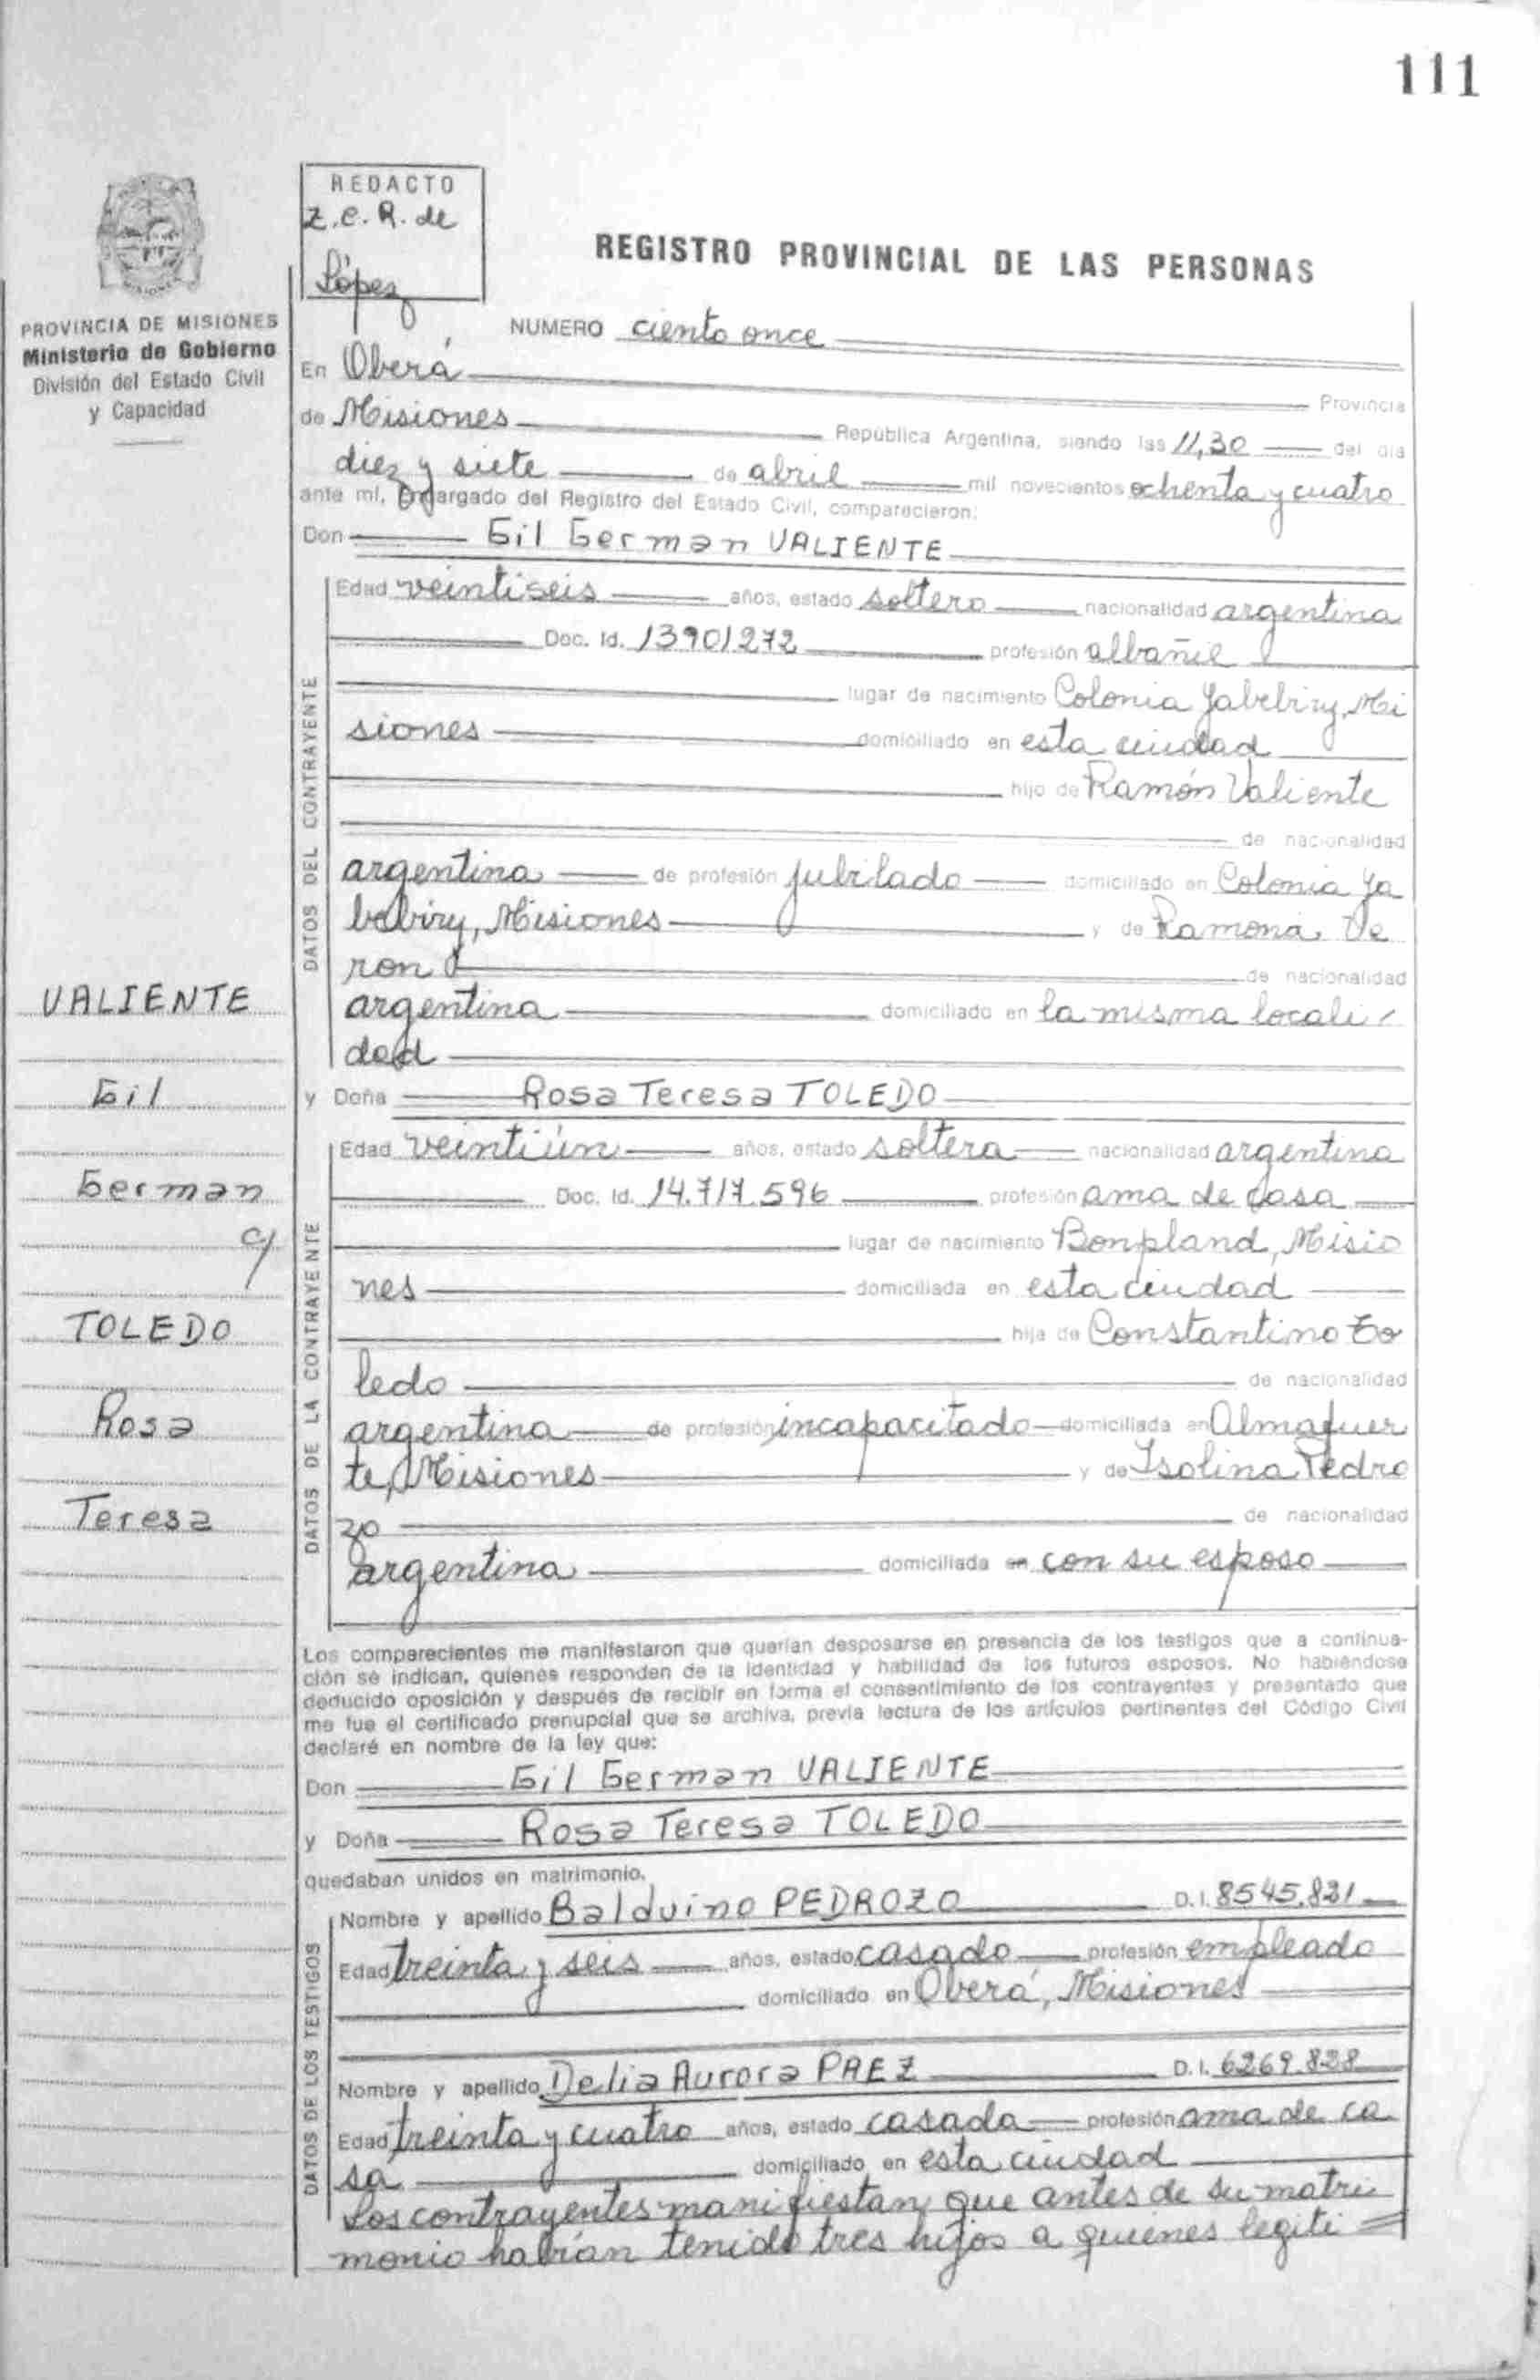 111
REDACTO
Z.C.R. de
López
REGISTRO PROVINCIAL DE LAS PERSONAS
PROVINCIA DE MISIONES
Ministerio de Gobierno
División del Estado Civil
y Capacidad
NUMERO ciento once
En Oberá
Provincia
de Misiones República Argentina, siendo las 11,30 del día
diez y siete de abril mil novecientos ochenta y cuatro
ante mí, Encargado del Registro del Estado Civil, comparecieron:
Don Gil German VALIENTE
DATOS DEL CONTRAYENTE
Edad veintiseis años, estado soltero nacionalidad argentina
Doc. Id. 13901272 profesión albañil
lugar de nacimiento Colonia Yabebiry, Mi
siones domiciliado en esta ciudad
hijo de Ramón Valiente
de nacionalidad
argentina de profesión jubilado domiciliado en Colonia Ya
bebiry, Misiones y de Ramona Ve
ron de nacionalidad
argentina domiciliado en la misma locali
dad
VALIENTE
Gil
German
y
TOLEDO
Rosa
Teresa
y Doña Rosa Teresa TOLEDO
DATOS DE LA CONTRAYENTE
Edad veintiún años, estado soltera nacionalidad argentina
Doc. Id. 14.717.596 profesión ama de casa
lugar de nacimiento Bonpland, Misio
nes domiciliada en esta ciudad
hija de Constantino To
ledo de nacionalidad
argentina de profesión incapacitado domiciliada en Almafuer
te, Misiones y de Isolina Pedro
zo de nacionalidad
argentina domiciliada en con su esposo
Los comparecientes me manifestaron que querían desposarse en presencia de los testigos que a continua-
ción se indican, quienes responden de la identidad y habilidad de los futuros esposos. No habiéndose
deducido oposición y después de recibir en forma el consentimiento de los contrayentes y presentado que
me fue el certificado prenupcial que se archiva, previa lectura de los artículos pertinentes del Código Civil
declaré en nombre de la ley que:
Don Gil German VALIENTE
y Doña Rosa Teresa TOLEDO
quedaban unidos en matrimonio.
DATOS DE LOS TESTIGOS
Nombre y apellido Balduino PEDROZO D.I. 8545.821
Edad treinta y seis años, estado casado profesión empleado
domiciliado en Oberá, Misiones
Nombre y apellido Delia Aurora PAEZ D.I. 6269.828
Edad treinta y cuatro años, estado casada profesión ama de ca
sa domiciliado en esta ciudad
Los contrayentes manifiestan que antes de su matri
monio habían tenido tres hijos a quienes legiti=